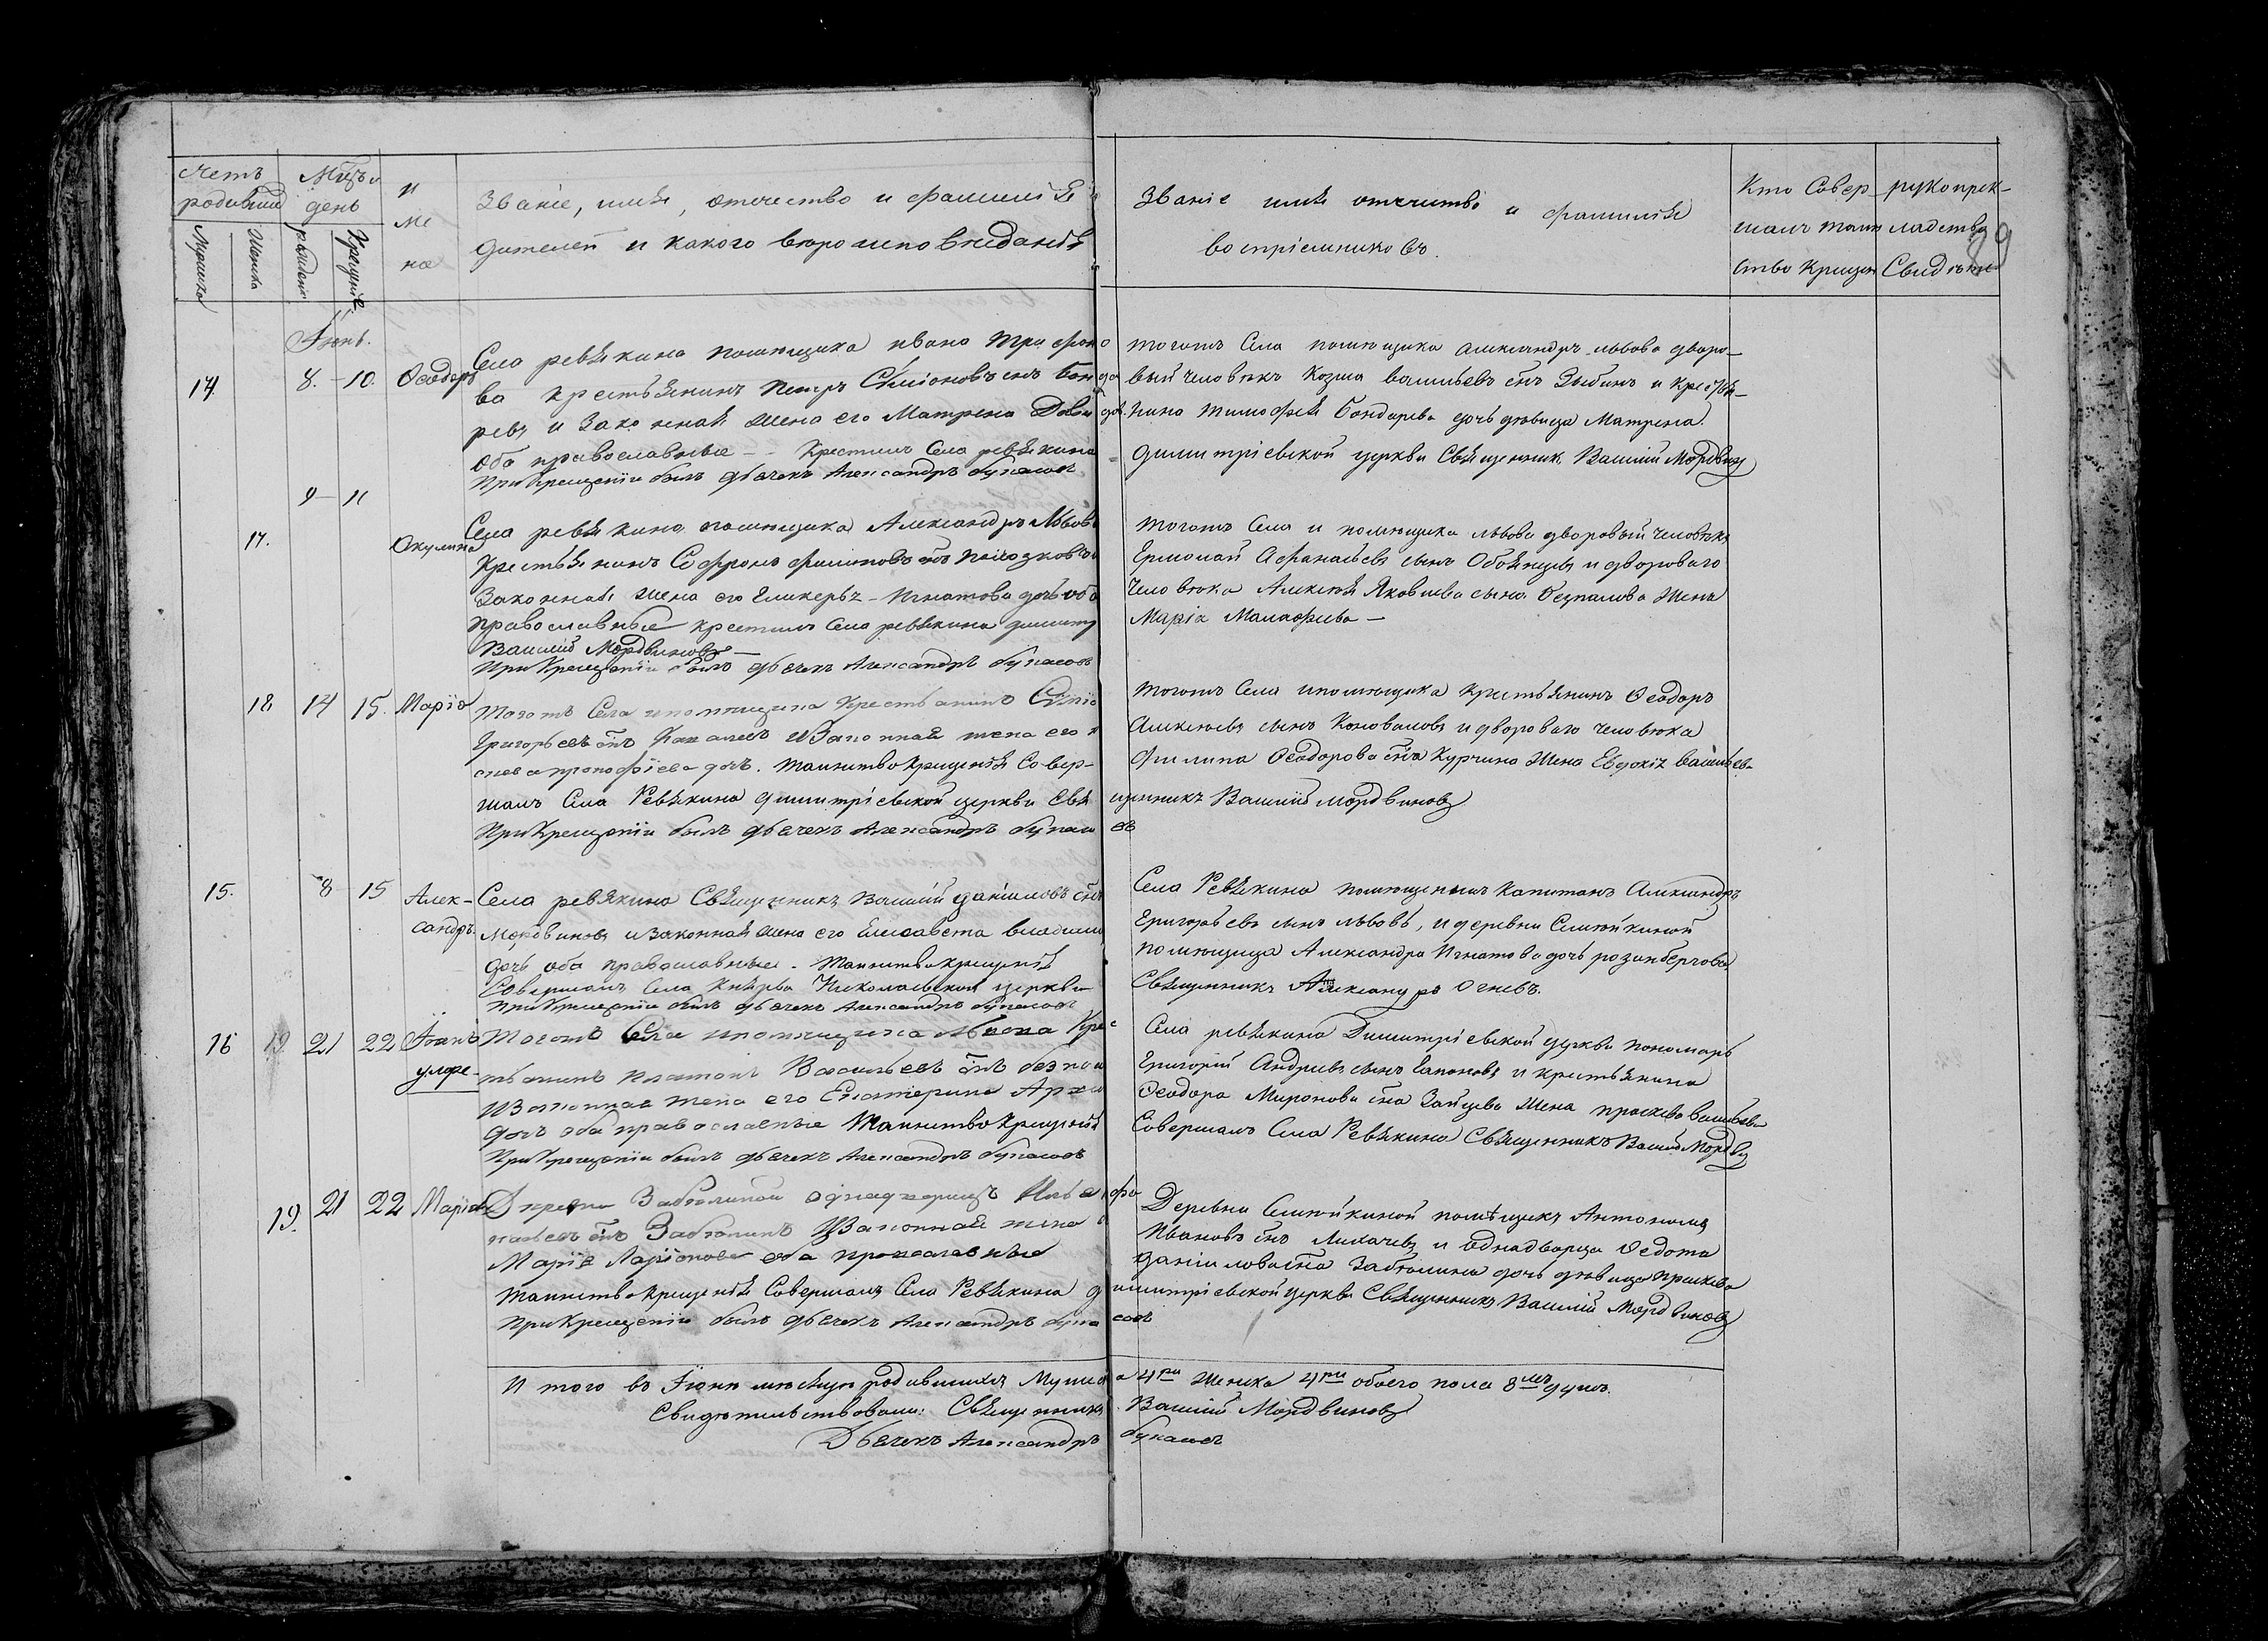 Счетъ родивши
Мужеска
Женска
Мцъ и день
рождения
Крещения
и ме на
Званіе, имя, отчество и фамиліѣ
дителей и какого вероисповиданія
Званіе имя отечитво и фамиліѣ
воспріемниковъ.
Кто Совер шалъ таин ство Крещен
рукоприк- ладства Свидѣте
89
Іюнь.
14. 8. - 10. Ѳеодоръ
Села ревякина помѣщика ивана Трифоно
ва крестьянинъ Петръ Симіоновъ снъ Бонда
ревъ и Законная жена его Матрена
Оба православные - - Крестилъ Села ревякина
При крещеніи былъ дьячекъ Александръ
тогожъ Села помѣщика александръ львова дворо-
вый человѣкъ Козма васильевъ снъ Зыбинъ и крестья-
нина тимофея бондарева дочь дѣвица Матрена.
димитріевской церкви Священникъ Василий Мордвин
9 - 11
17. Окулина
Села ревякина помѣщика Александръ Львова
Крестьянинъ Софронъ филиповъ снъ
Законная жена его Гликерья - Игнатова дочь оба
православные крестилъ Села ревякина димитр
Василий Мордвиновъ -
При крещеніи былъ дьячекъ Александръ
тогожъ Села и помѣщика львова дворовый человѣкъ
Ермолай Афанасьевъ сынъ Обоянцевъ и двороваго
человѣка Алексѣя Яковлева сына Безпалова жена
Марія Малафиева -
18 14 15. Марія
Тогожъ Села и помѣщика Крестьянинъ
Григорьевъ снъ и Законная жена его
прокофіева дочь. Таинство Крещенія Совер-
шалъ Села Ревякина димитріевской церкви Свя
При крещеніи былъ дьячекъ Александръ
тогожъ Села и помѣщика крестьянинъ Ѳеодоръ
Алексѣевъ сынъ Коноваловъ и двороваго человѣка
Филипа Ѳеодорова сна Курчина жена Евдокія васильев-
щенникъ Василий мордвиновъ
15. 8 - 15 Алек- сандръ.
Села ревякина Священникъ Василий даниловъ снъ
Мордвиновъ и Законная жена его Елисавета
дочь оба православные - Таинство крещенія
Совершалъ Села Князева Николаевской церкви
При крещеніи былъ дьячекъ Александръ
Села Ревякина помѣщикъ Капитанъ Александръ
Григорьевъ сынъ львовъ, и деревни Селитюкиной
помѣщица Александра Игнатова дочь розанбергова
Священникъ Александръ Огневъ.
16 19. 21 22 Іоанъ
Тогожъ Села и помѣщика Львова Крес
тьянинъ Платонъ Васильевъ снъ безпал
и Законная жена его Екатерина
дочь оба православные Таинство Крещенія
При крещеніи былъ дьячекъ Александръ
Села ревякина Димитріевской церкви пономарь
Григорий Андриевъ сынъ Сапоновъ и крестьянина
Ѳеодора Миронова сна Зайцева жена праскева васильева
Совершалъ Села Ревякина Священникъ Василий Мордви
19. 21 22 Марія
Деревни Забѣлиной однадворецъ
снъ Забѣлинъ и Законная жена
Марія Ларіонова оба православные
Таинство Крещенія Совершалъ Села Ревякина д
При крещеніи былъ дьячекъ Александръ
Деревни Селитюкиной помѣщикъ Антономъ
Ивановъ снъ Лихачевъ и однадворца Ѳедота
данилова сна Забѣлина дочь дѣвица праскева
имитріевской церкви Священникъ Василий Мордвиновъ
И того въ Іюнѣ месяцѣ родившихся Мужеска 4ри Женска 4ри обоего пола 8мь душъ.
Свидѣтельствовали: Священникъ Василий Мордвиновъ
Дьячекъ Александръ